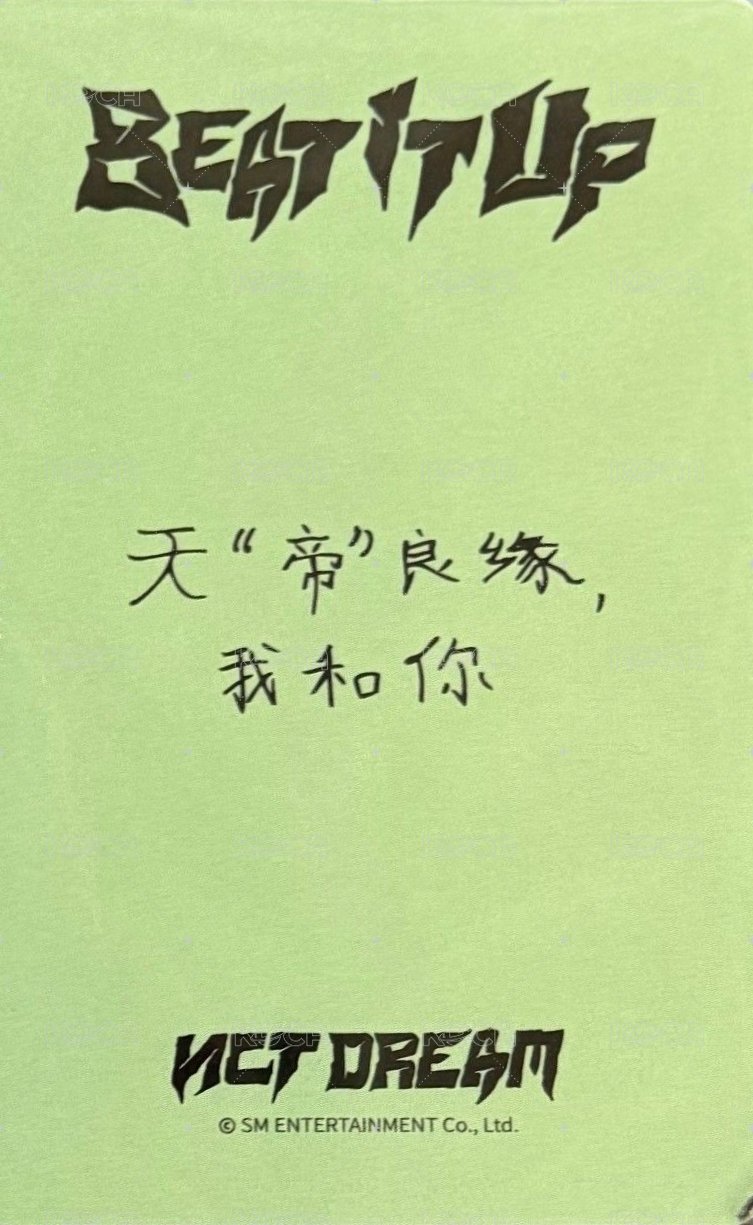 BEAT IT UP
天“帝”良缘,
我和你
NCT DREAM
© SM ENTERTAINMENT Co., Ltd.